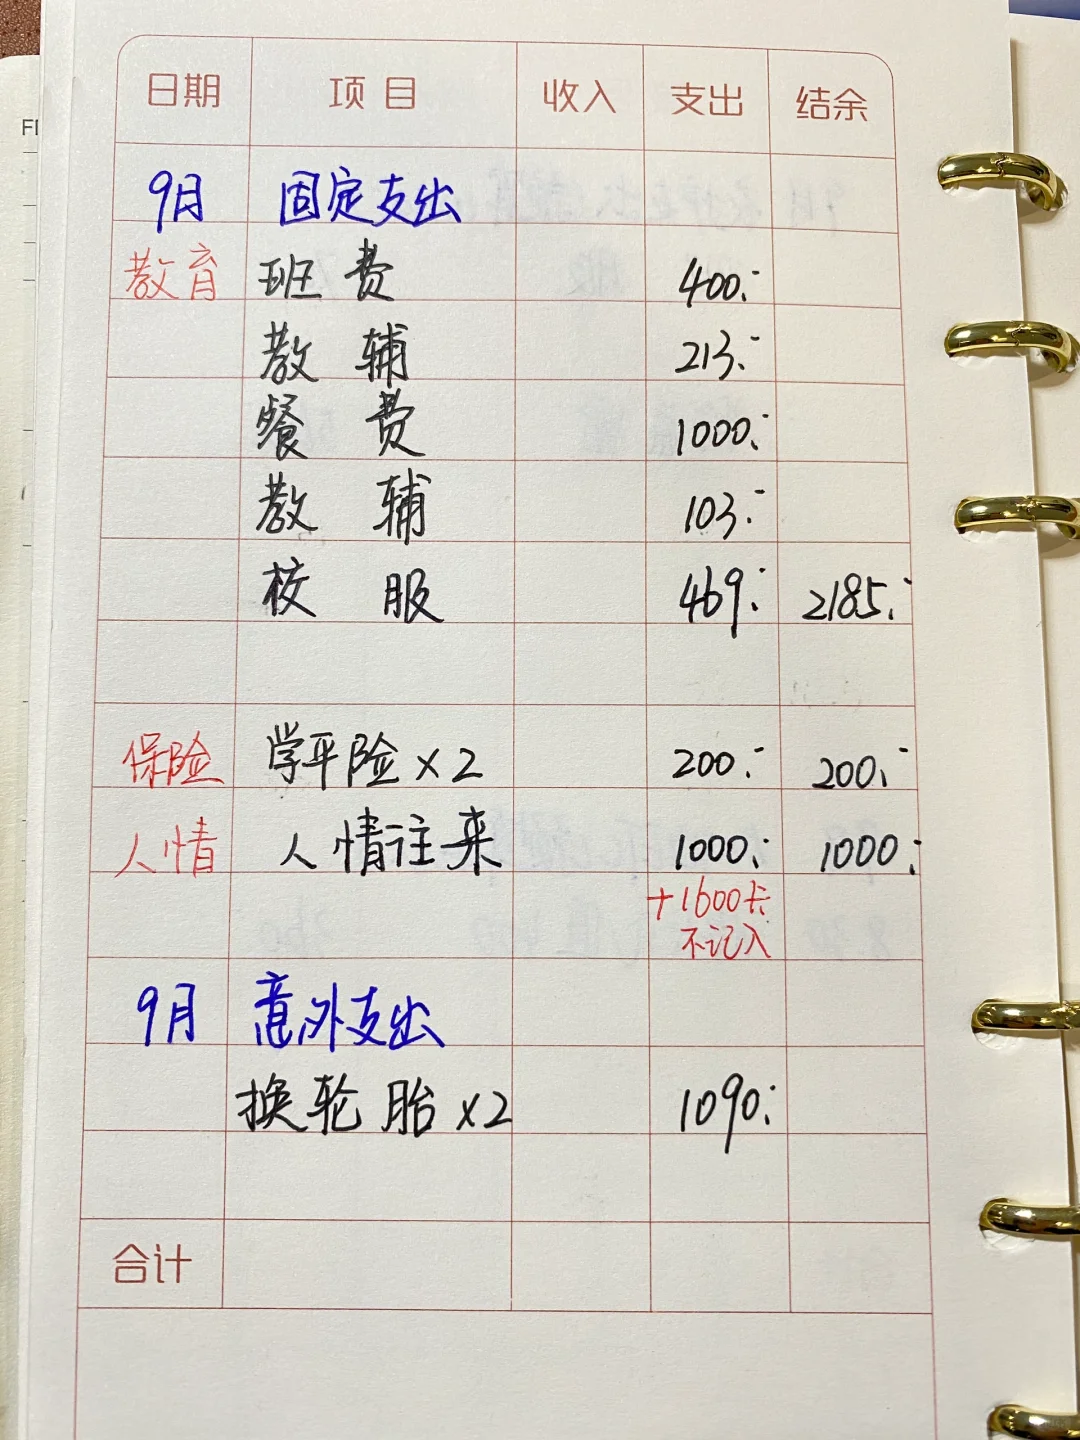 日期 项目 收入 支出 结余
9月 固定支出
教育 班费 400.-
教辅 213.-
餐费 1000.-
教辅 103.-
校服 469.- 2185.-
保险 学平险×2 200.- 200.-
人情 人情往来 1000.- 1000.-
+1600卡
不记入
9月 意外支出
换轮胎×2 1090.-
合计